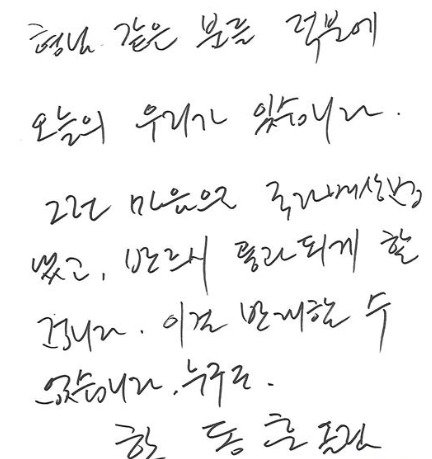 형님 같은 분들 덕분에
오늘의 우리가 있습니다.
그런 마음으로 국가배상법
냈고, 반드시 통과되게 할
겁니다. 이걸 반대하는 수
없습니다. 누구도.
한 동 훈 드림